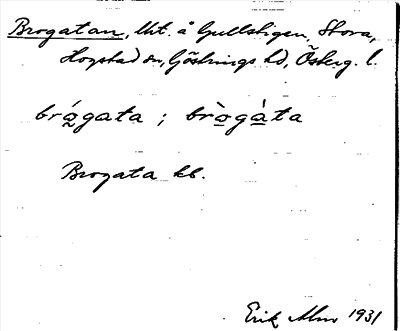 Brogatan, lht. å Gullstigen, Stora,
Hogstad sn, Göstrings hd, Österg. l.
brǫ́gata ; brò̱gà̱ta
Brogata kb.
Erik Alm 1931